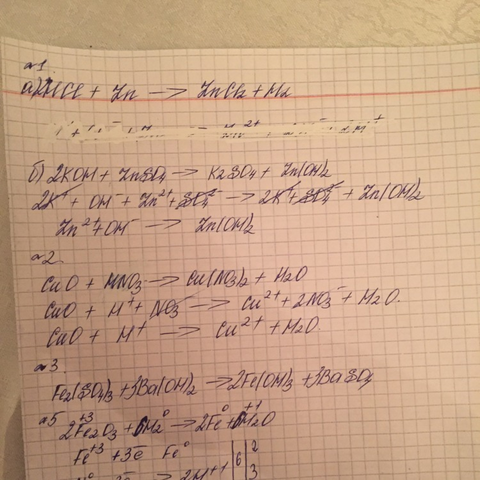 №1
а) 2HCl + Zn → ZnCl2 + H2
б) 2KOH + ZnSO4 → K2SO4 + Zn(OH)2
2K⁺ + OH⁻ + Zn²⁺ + SO4²⁻ → 2K⁺ + SO4²⁻ + Zn(OH)2
Zn²⁺ + OH⁻ → Zn(OH)2
№2
CuO + HNO3 → Cu(NO3)2 + H2O
CuO + H⁺ + NO3⁻ → Cu²⁺ + 2NO3⁻ + H2O.
CuO + H⁺ → Cu²⁺ + H2O
№3
Fe2(SO4)3 + 3Ba(OH)2 → 2Fe(OH)3 + 3BaSO4
№5
2Fe2⁺³O3 + 6H2⁰ → 2Fe⁰ + 6H2⁺¹O
Fe⁺³ + 3e̅ Fe⁰ | 6 | 2
→ 2H⁺¹ | 3